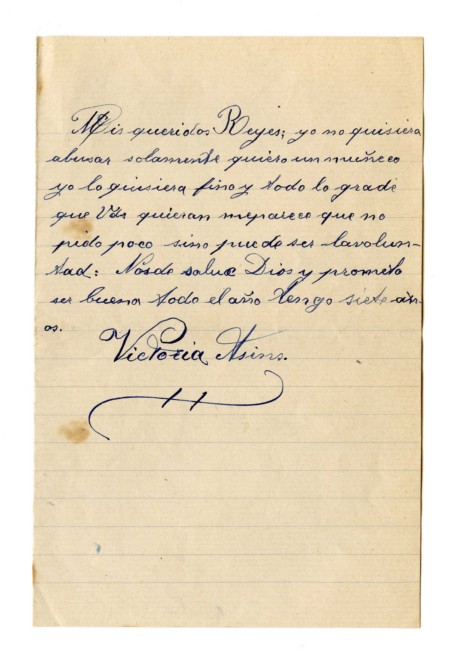 Mis queridos Reyes; yo no quisiera
abusar solamente quiero un muñeco
yo lo quisiera fino y todo lo grade
que Vds quieran meparece que no
pido poco sino puede ser lavolun-
tad: Nosde saluz Dios y prometo
ser buena todo el año tengo siete añ-
os.
Victoria Asins.